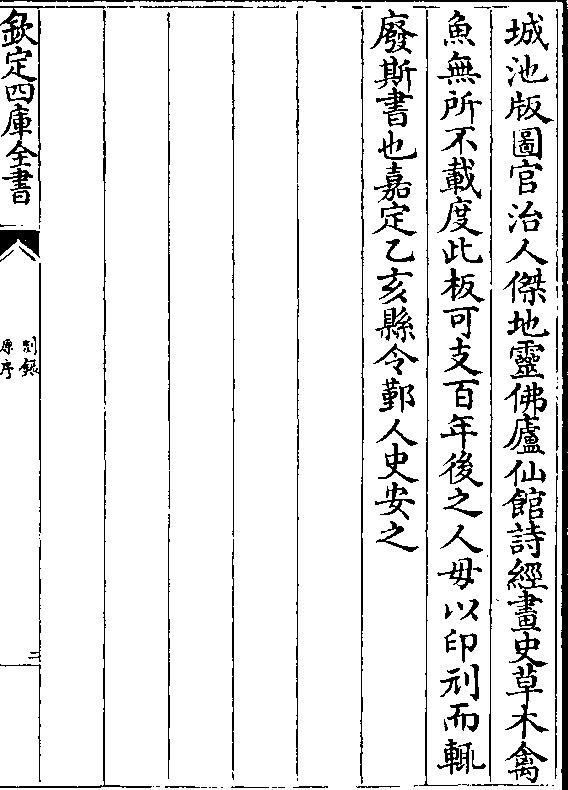 城池版圖官治人傑地靈佛廬仙館詩經畫史草木禽
魚無所不載度此板可支百年後之人毋以印刓而輒
廢斯書也嘉定乙亥縣令鄞人史安之
欽定四庫全書
剡錄
原序
二